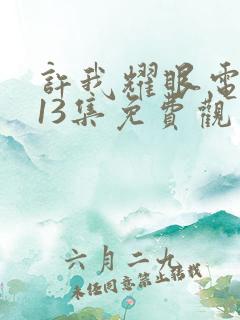 許我耀眼電
13集免費觀
六月二九
未经同意禁止转载